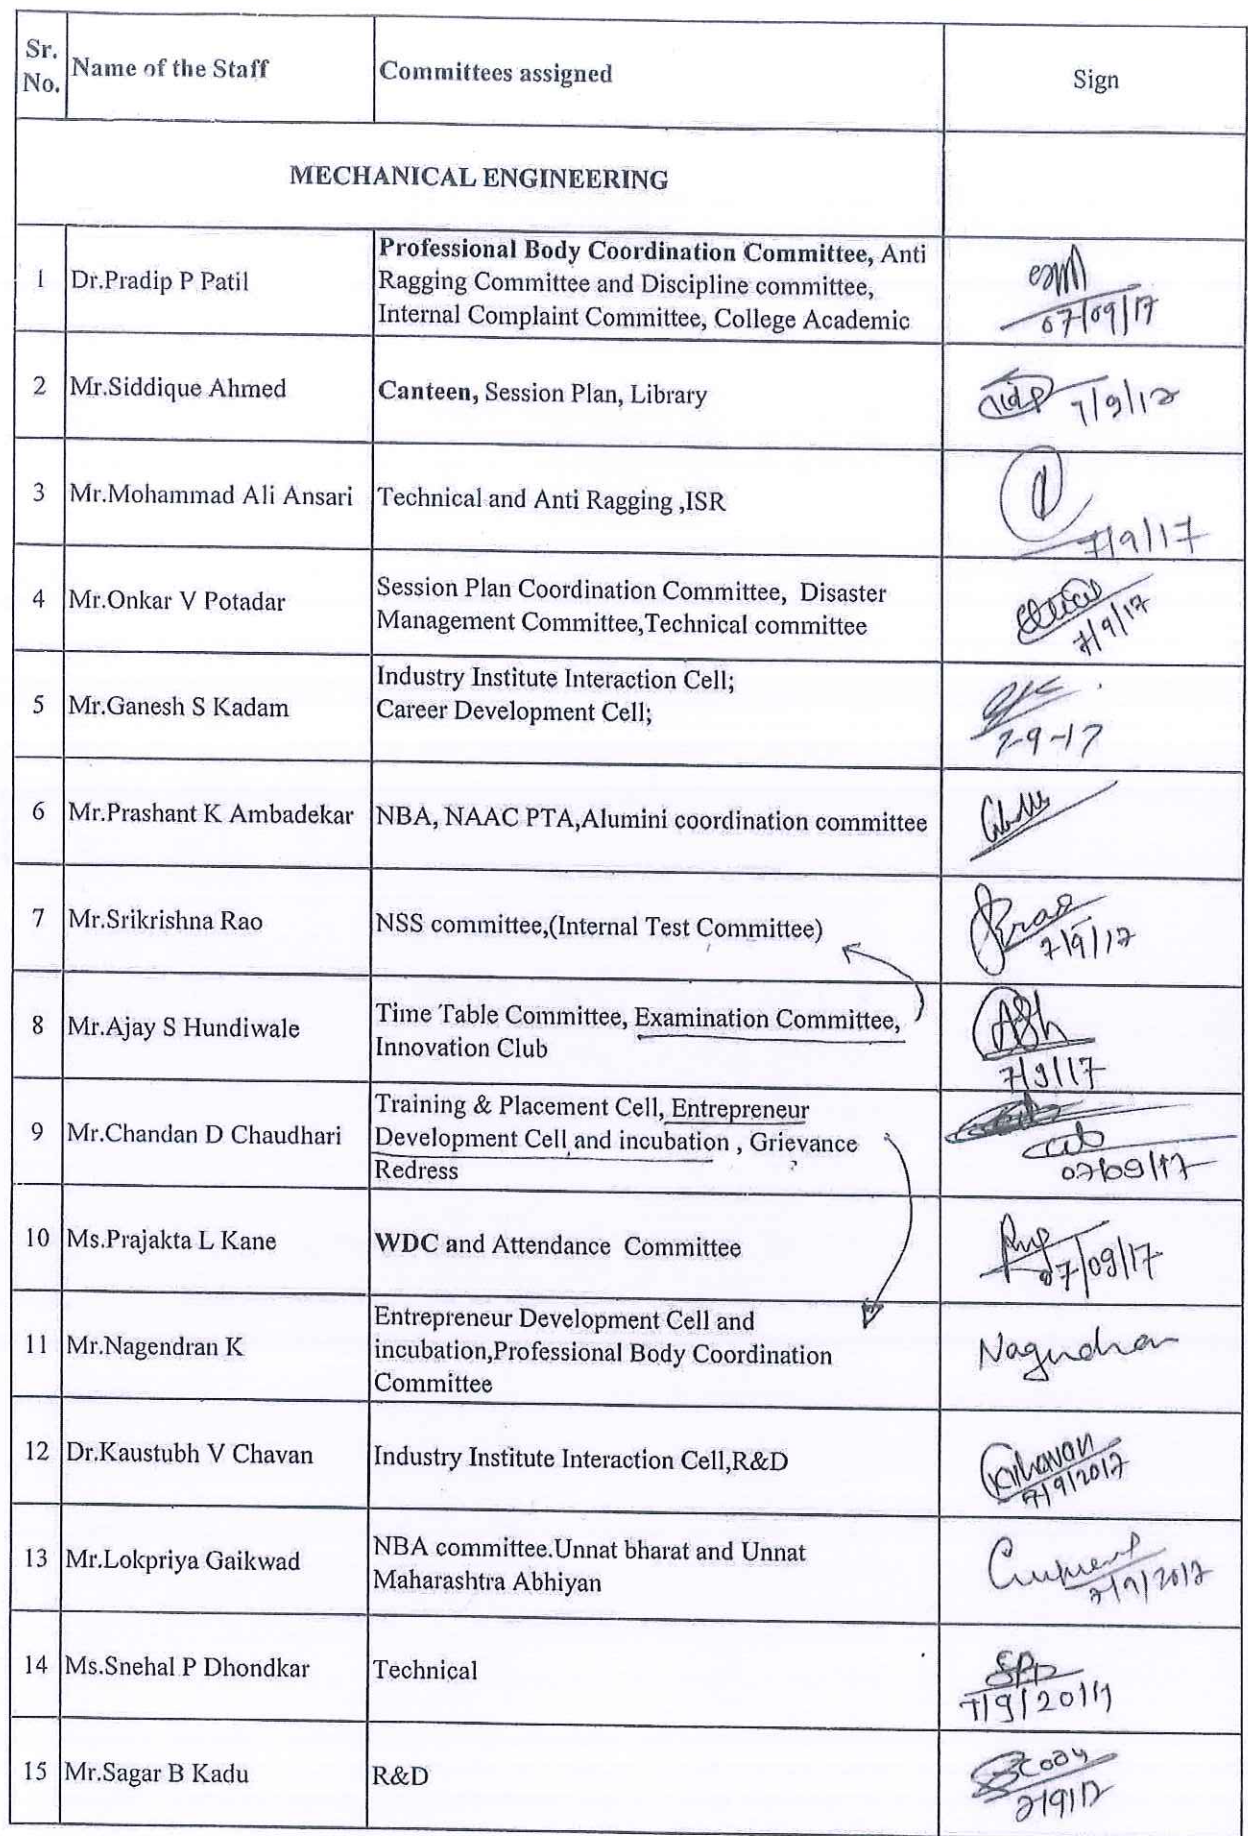 Sr. No. Name of the Staff Committees assigned Sign
MECHANICAL ENGINEERING
1 Dr.Pradip P Patil Professional Body Coordination Committee, Anti
Ragging Committee and Discipline committee,
Internal Complaint Committee, College Academic
07/09/17
2 Mr.Siddique Ahmed Canteen, Session Plan, Library 7/9/17
3 Mr.Mohammad Ali Ansari Technical and Anti Ragging ,ISR
7/9/17
4 Mr.Onkar V Potadar Session Plan Coordination Committee, Disaster
Management Committee,Technical committee 7/9/17
5 Mr.Ganesh S Kadam Industry Institute Interaction Cell;
Career Development Cell;
7-9-17
6 Mr.Prashant K Ambadekar NBA, NAAC PTA,Alumini coordination committee
7 Mr.Srikrishna Rao NSS committee,(Internal Test Committee) Rao
7/9/17
8 Mr.Ajay S Hundiwale Time Table Committee, Examination Committee,
Innovation Club
ASh
7/9/17
9 Mr.Chandan D Chaudhari Training & Placement Cell, Entrepreneur
Development Cell and incubation , Grievance
Redress
07/09/17
10 Ms.Prajakta L Kane WDC and Attendance Committee
07/09/17
11 Mr.Nagendran K Entrepreneur Development Cell and
incubation,Professional Body Coordination
Committee
Nagendran
12 Dr.Kaustubh V Chavan Industry Institute Interaction Cell,R&D
7/9/2017
13 Mr.Lokpriya Gaikwad NBA committee.Unnat bharat and Unnat
Maharashtra Abhiyan
7/9/2017
14 Ms.Snehal P Dhondkar Technical
7/9/2017
15 Mr.Sagar B Kadu R&D
7/9/17